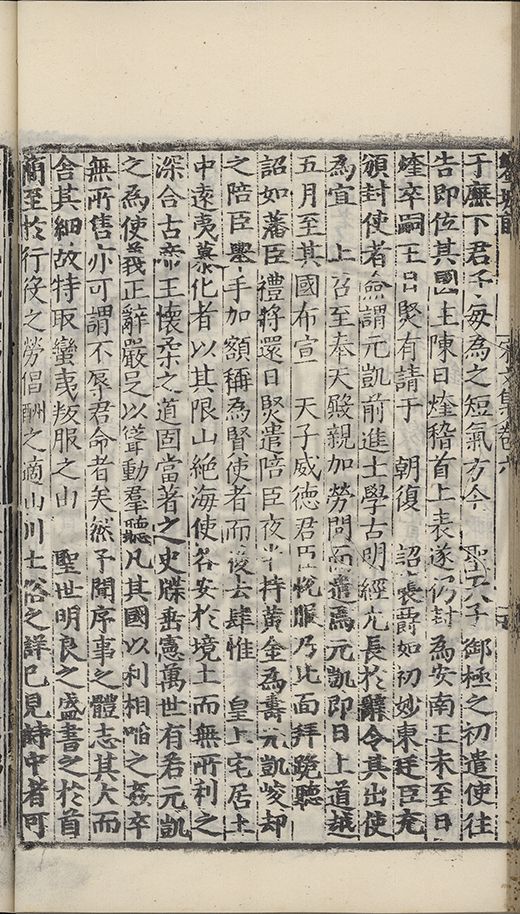 鑾坡前 宋文集卷六
于麾下君子每為之短氣方今 聖天子 御極之初遣使往
告即位其國主陳日煃稽首上表遂仍封為安南王未至日
煃卒嗣王日熞有請于 朝復 詔襲爵如初妙柬廷臣充
頒封使者僉謂元凱前進士學古明經尤長於辭令其出使
為宜 上召至奉天殿親加勞問而遣焉元凱即日上道越
五月至其國布宣 天子威德君臣悅服乃北面拜跪聽
詔如藩臣禮將還日熞遣陪臣夜半持黃金為壽元凱峻却
之陪臣舉手加額稱為賢使者而後去肆惟 皇上宅居土
中遠夷慕化者以其限山絕海使各安於境土而無所利之
深合古帝王懷柔之道固當著之史牒垂憲萬世有若元凱
之為使義正辭嚴足以聳動羣聽凡其國以利相啗之姦卒
無所售亦可謂不辱君命者矣然予聞序事之體志其大而
舍其細故特取蠻夷叛服之由 聖世明良之盛書之於首
簡至於行役之勞倡酬之適山川土俗之詳已見詩中者可